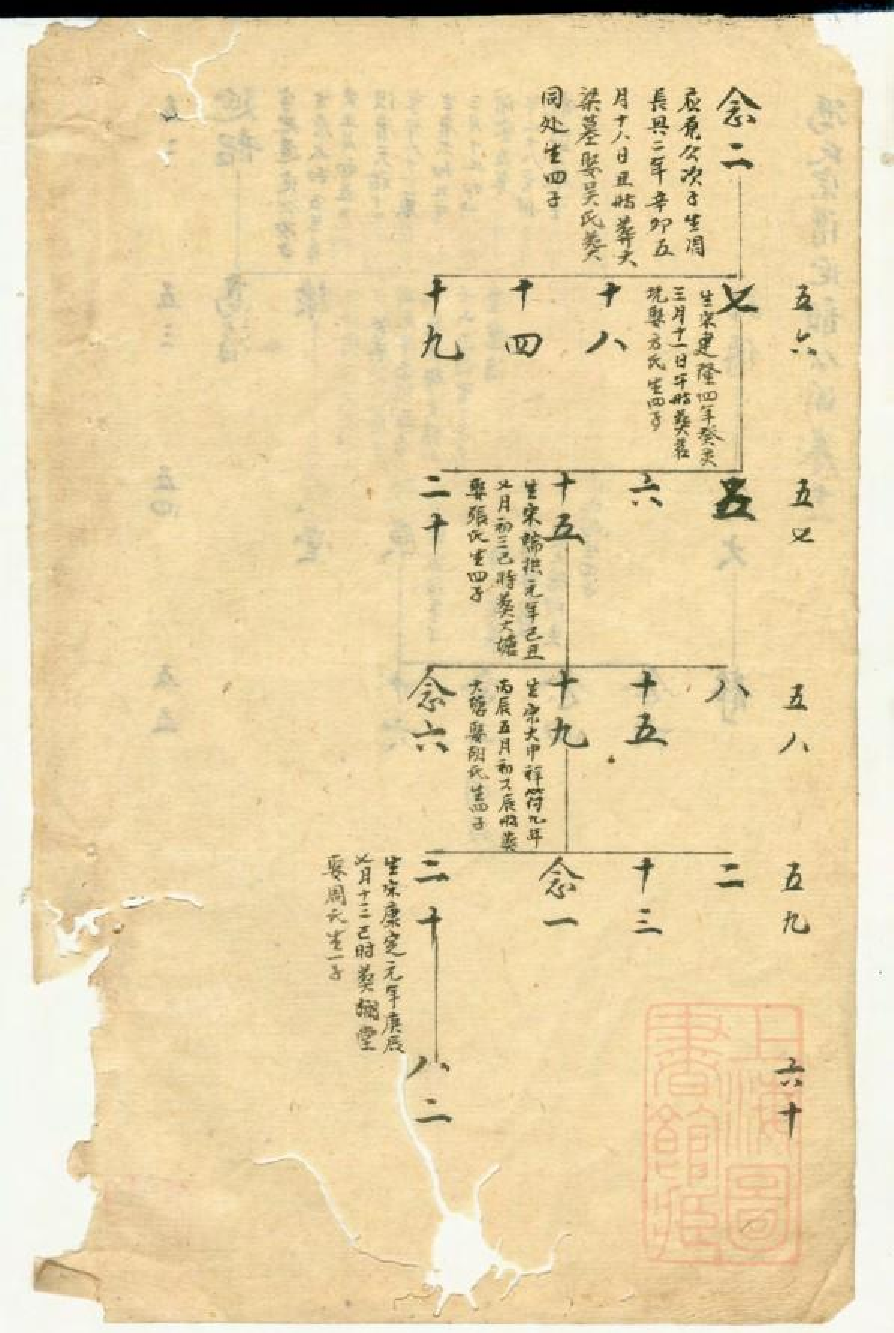 念二
公次子生周
長興二年辛卯五
月十八日丑時葬大
梁墓娶吳氏葬
同处生四子
五六
七
生宋建隆四年癸亥
三月十一日午时葬
娶方氏生四子
十八
十四
十九
五七
五
六
十五
生宋端拱元年己丑
七月初三巳時葬大塘
娶張氏生四子
二十
五八
八
十五
十九
生宋大中祥符九年
丙辰五月初 辰时葬
大塘娶 氏生四子
念六
五九
二
十三
念一
三十
生宋康定元年庚辰
七月十三巳时葬 堂
娶周氏生一子
六十
八二
上海圖
書館藏